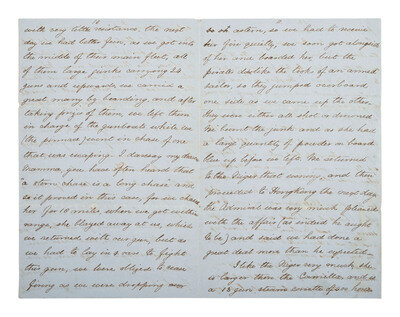 with very little resistance, the next
day we had better fun, as we got into
the middle of their main fleet, all
of them large junks carrying 24
guns and upwards we carried a
great many by boarding, and after
taking prize of them, we left them
in charge of the gunboats while we
(the pinnace) went in chase of one
that was escaping. I daresay my dear
Mamma, you have often heard that
a stern chase is a long chase and
so it proved in this case, for we chased
her for 18 miles when we got within
range, she blazed away at us, which
we returned with our gun, but as
we had to lay in & oar to fight
this gun, we were obliged to cease
firing as we were dropping over
so astern, so we had to reserve
our fire quietly, we soon got alongside
of her and boarded her, but the
pirates dislike the looks of an armed
sailor, so they jumped overboard
one side as we came up the other.
They were either all shot or drowned
We burnt the junk and as she had
a large quantity of powder on board
blew up before we left. We returned
to the Niger that evening, and then
proceeded to Hongkong the next day
the Admiral was very much pleased
with the affair (as indeed he ought
to be) and said we had done a
great deal more than he expected
I like the Niger very much, she
is larger than the Camilla and
is a 13 gun steam corvette of 400 horse